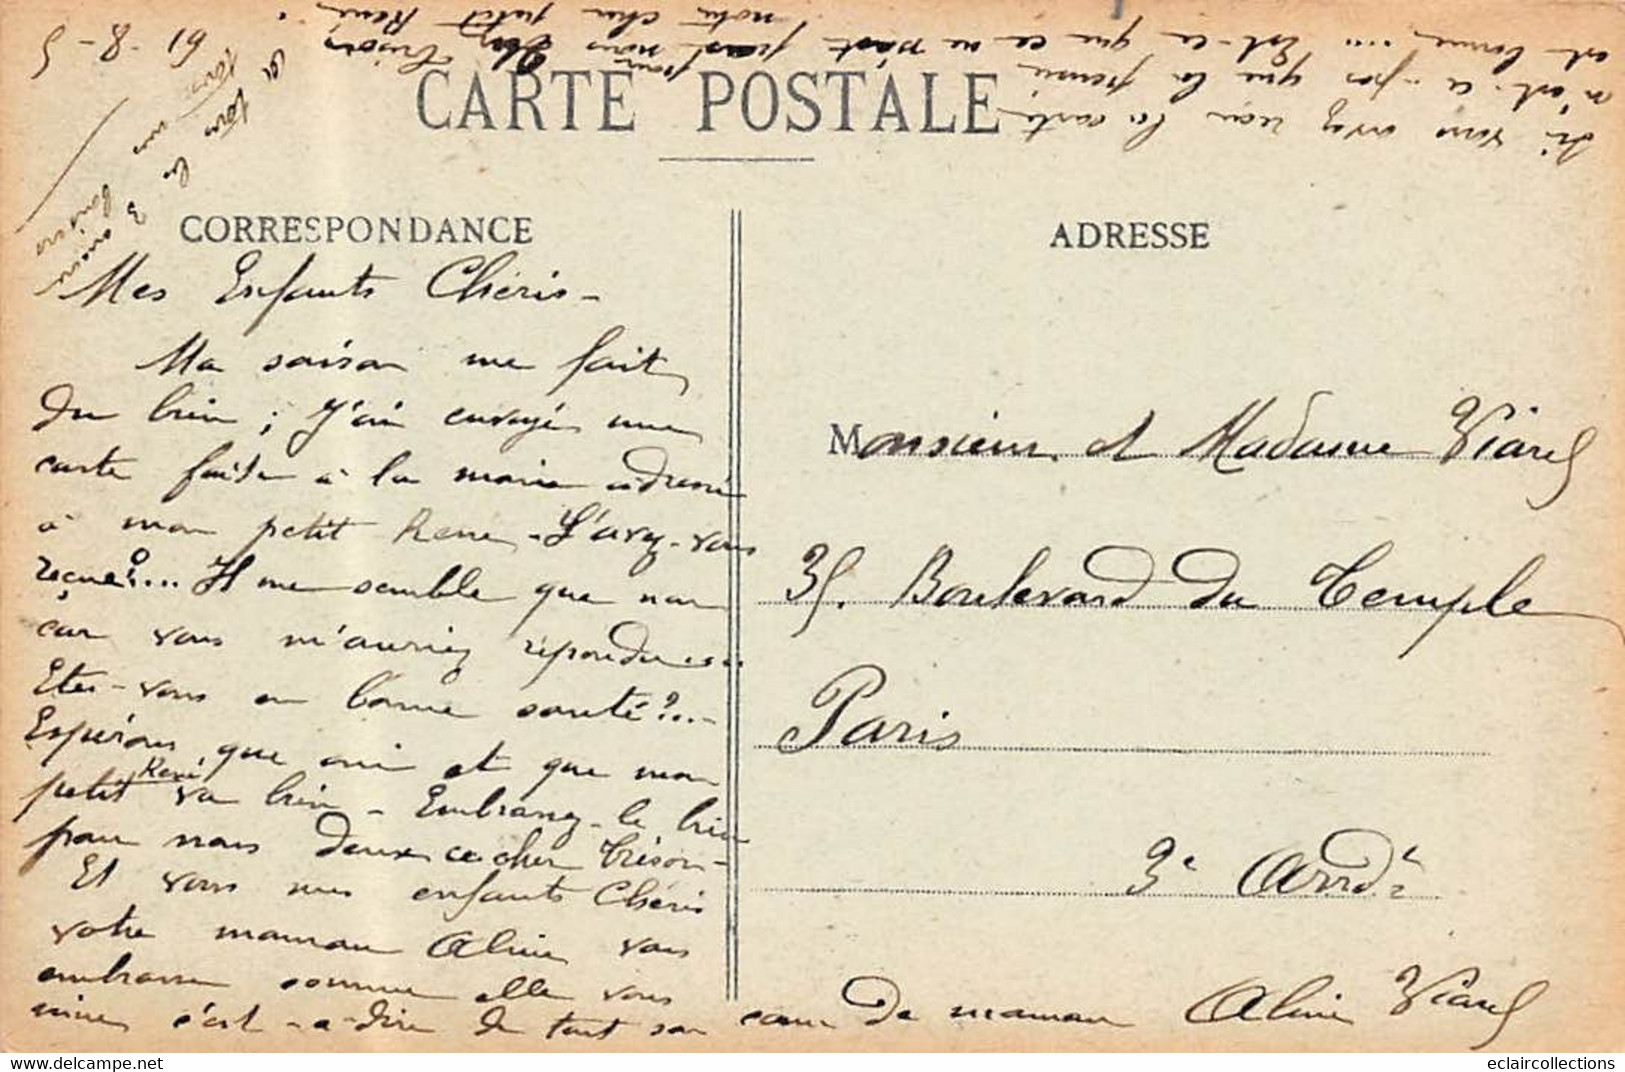 CARTE POSTALE
CORRESPONDANCE
ADRESSE
Mes Enfants Chéris -
Ma saison me fait
du bien ; J'ai envoyé une
carte faite à la main adressé
à mon petit Rene - L'avez-vous
reçue ?... Il me semble que non
car vous m'auriez répondu ...
Etes-vous en bonne santé ?...-
Espérons que oui et que mon
petit René va bien - Embrassez-le bien
pour nous deux ce cher trésor -
Et vous mes enfants Chéris
votre maman Aline vous
embrasse comme elle vous
aime c'est-à-dire de tout son cœur de maman Aline Viarel
Monsieur et Madame Viarel
35. Boulevard du Temple
Paris
3e Arrdt
Si vous avez reçu la carte
n'est-ce pas que la pensée
est bonne, ... Est-ce que ce n'est pas nous
notre cher petit René.
et tous
tous le 3
baisers
eclaircollections